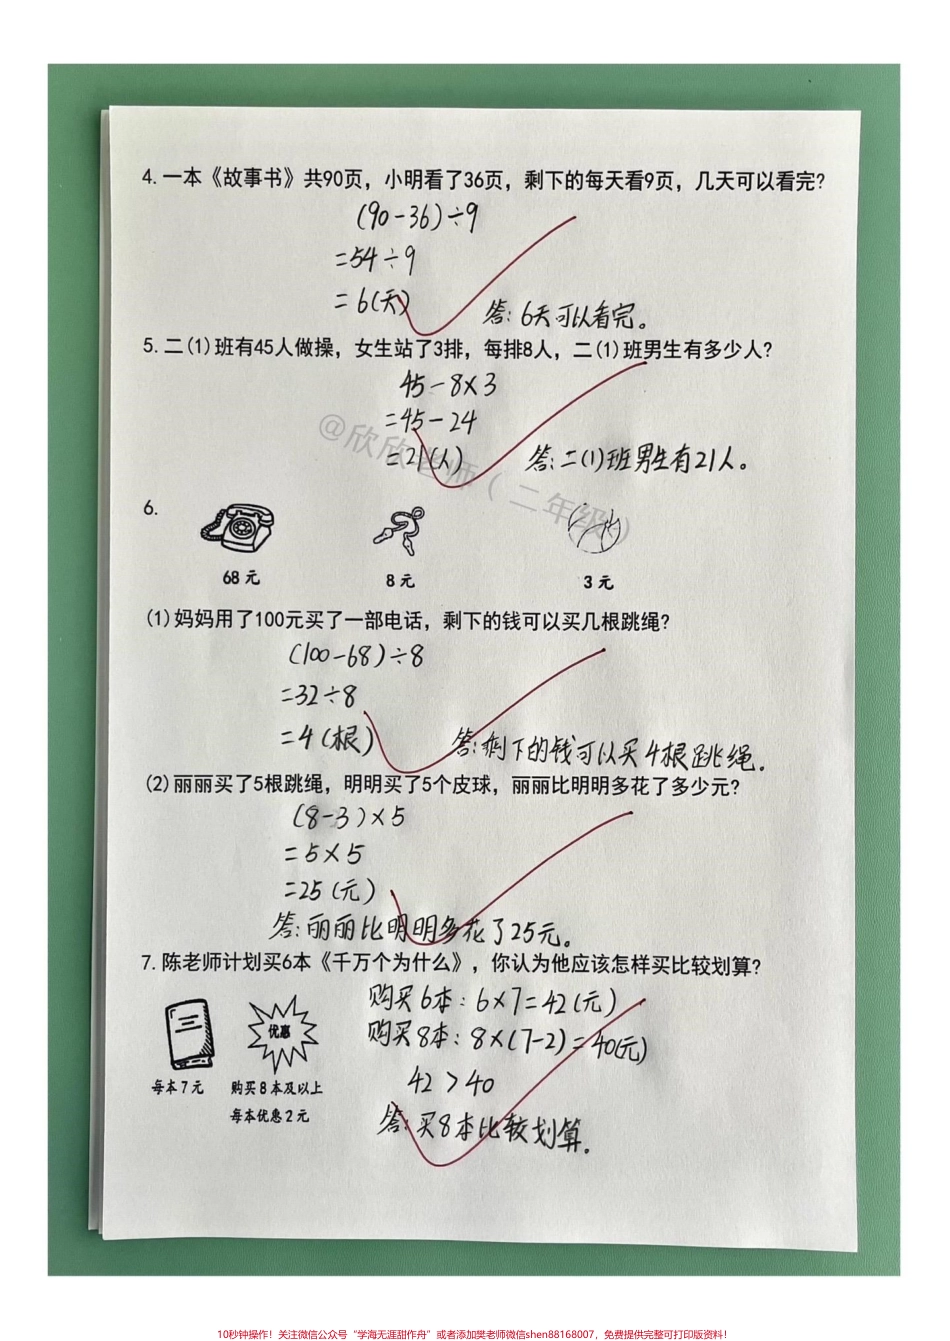 4.一本《故事书》共90页，小明看了36页，剩下的每天看9页，几天可以看完？
(90-36)÷9
=54÷9
=6(天)
答：6天可以看完。
5.二(1)班有45人做操，女生站了3排，每排8人，二(1)班男生有多少人？
45-8×3
=45-24
=21(人)
答：二(1)班男生有21人。
@欣欣老师（二年级）
6.
68元 8元 3元
(1)妈妈用了100元买了一部电话，剩下的钱可以买几根跳绳？
(100-68)÷8
=32÷8
=4(根)
答：剩下的钱可以买4根跳绳.
(2)丽丽买了5根跳绳，明明买了5个皮球，丽丽比明明多花了多少元？
(8-3)×5
=5×5
=25(元)
答：丽丽比明明多花了25元。
7.陈老师计划买6本《千万个为什么》，你认为他应该怎样买比较划算？
购买6本：6×7=42(元)
购买8本：8×(7-2)=40(元)
42>40
答：买8本比较划算.
优惠
每本7元 购买8本及以上
每本优惠2元
10秒钟操作！关注微信公众号“学海无涯甜作舟”或者添加樊老师微信shen88168007，免费提供完整可打印版资料！